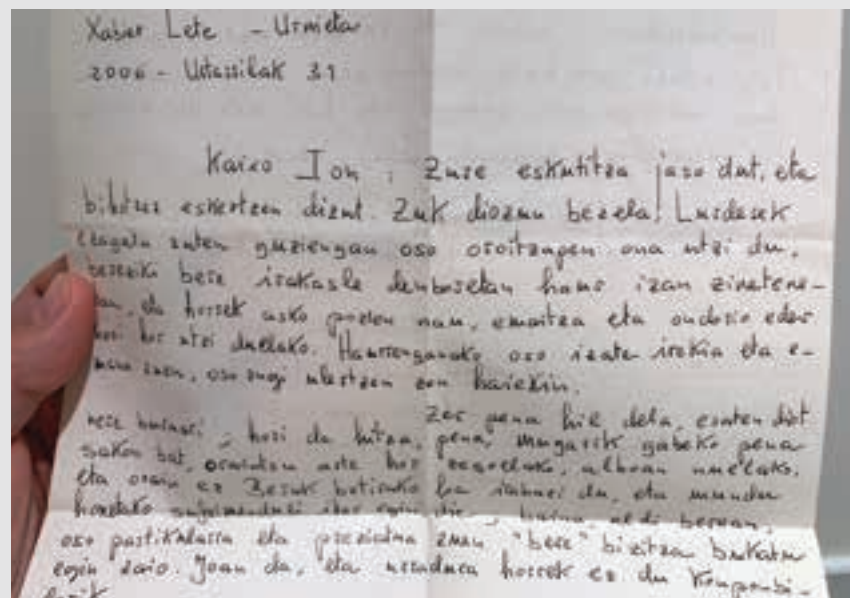 Xabier Lete - Urnieta
2006 - Uztailak 31
Kaixo Jon: Zure eskutitza jaso dut, eta
bihotzez eskertzen dizut. Zuk diozun bezela! Lurdesek
ezagutu zuten guziengan oso oroitzapen ona utzi du,
bereziki bere irakasle denboretan haur izan zinetene-
tan, eta horrek asko pozten nau, emaitza eta ondorio eder
hori hor utzi duelako. Haurrenganako oso izate irekia eta e-
zuen, oso ongi ulertzen zen haiekin.
Zer pena hil dela, esaten diot
nere buruari, hori da hitza, pena, mugarik gabeko pena
sakon bat, orain aste hor zegoelako, alboan nuelako,
eta orain ez. Berak betirako irabazi du, eta mundu
honetako egin bere,
oso partikularra eta preziatua zuen "bere" bizitza bukatu
egin zaio. Joan da, eta horrek ez du konponbi-
derik